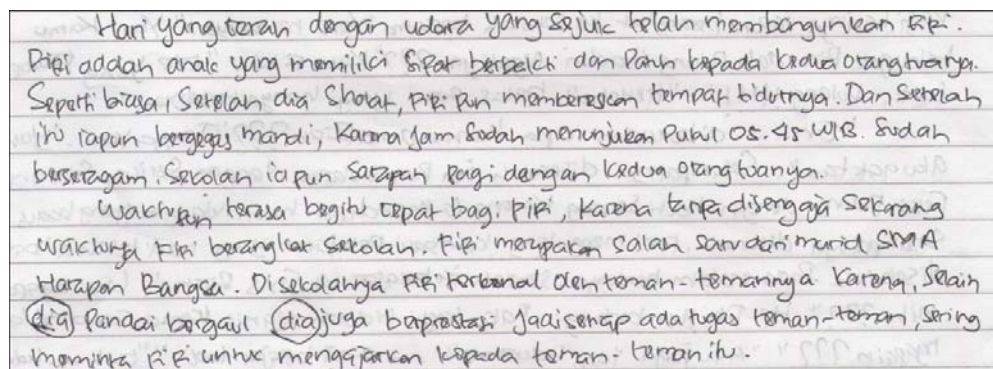 Hari yang cerah dengan udara yang sejuk telah membangunkan Fifi.
Fifi adalah anak yang memiliki sifat berbakti dan Patuh kepada kedua orang tuanya.
Seperti biasa, Setelah dia Sholat, Fifi Pun membereskan tempat tidurnya. Dan Setelah
itu iapun bergegas mandi, Karena Jam Sudah menunjukan Pukul 05.45 WIB. Sudah
berseragam. Sekolah ia pun Sarapan Pagi dengan kedua orang tuanya.
Waktupun terasa begitu cepat bagi Fifi, Karena tanpa disengaja Sekarang
waktunya Fifi berangkat Sekolah. Fifi merupakan Salah Satu dari murid SMA
Harapan Bangsa. Disekolahnya Fifi terkenal den teman-temannya Karena, Selain
dia Pandai bergaul dia juga berprestasi Jadi setiap ada tugas teman-teman, Sering
meminta Fifi untuk mengajarkan kepada teman-teman itu.